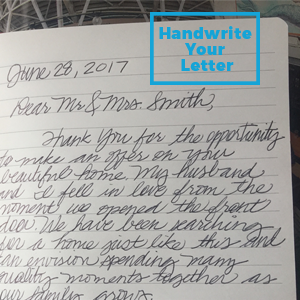 Handwrite
Your
Letter
June 28, 2017
Dear Mr & Mrs. Smith,
Thank You for the opportunity
to make an offer on your
beautiful home. My husband
and I fell in love from the
moment we opened the front
door. We have been searching
for a home just like this and
can envision spending many
quality moments together as
our family grows.